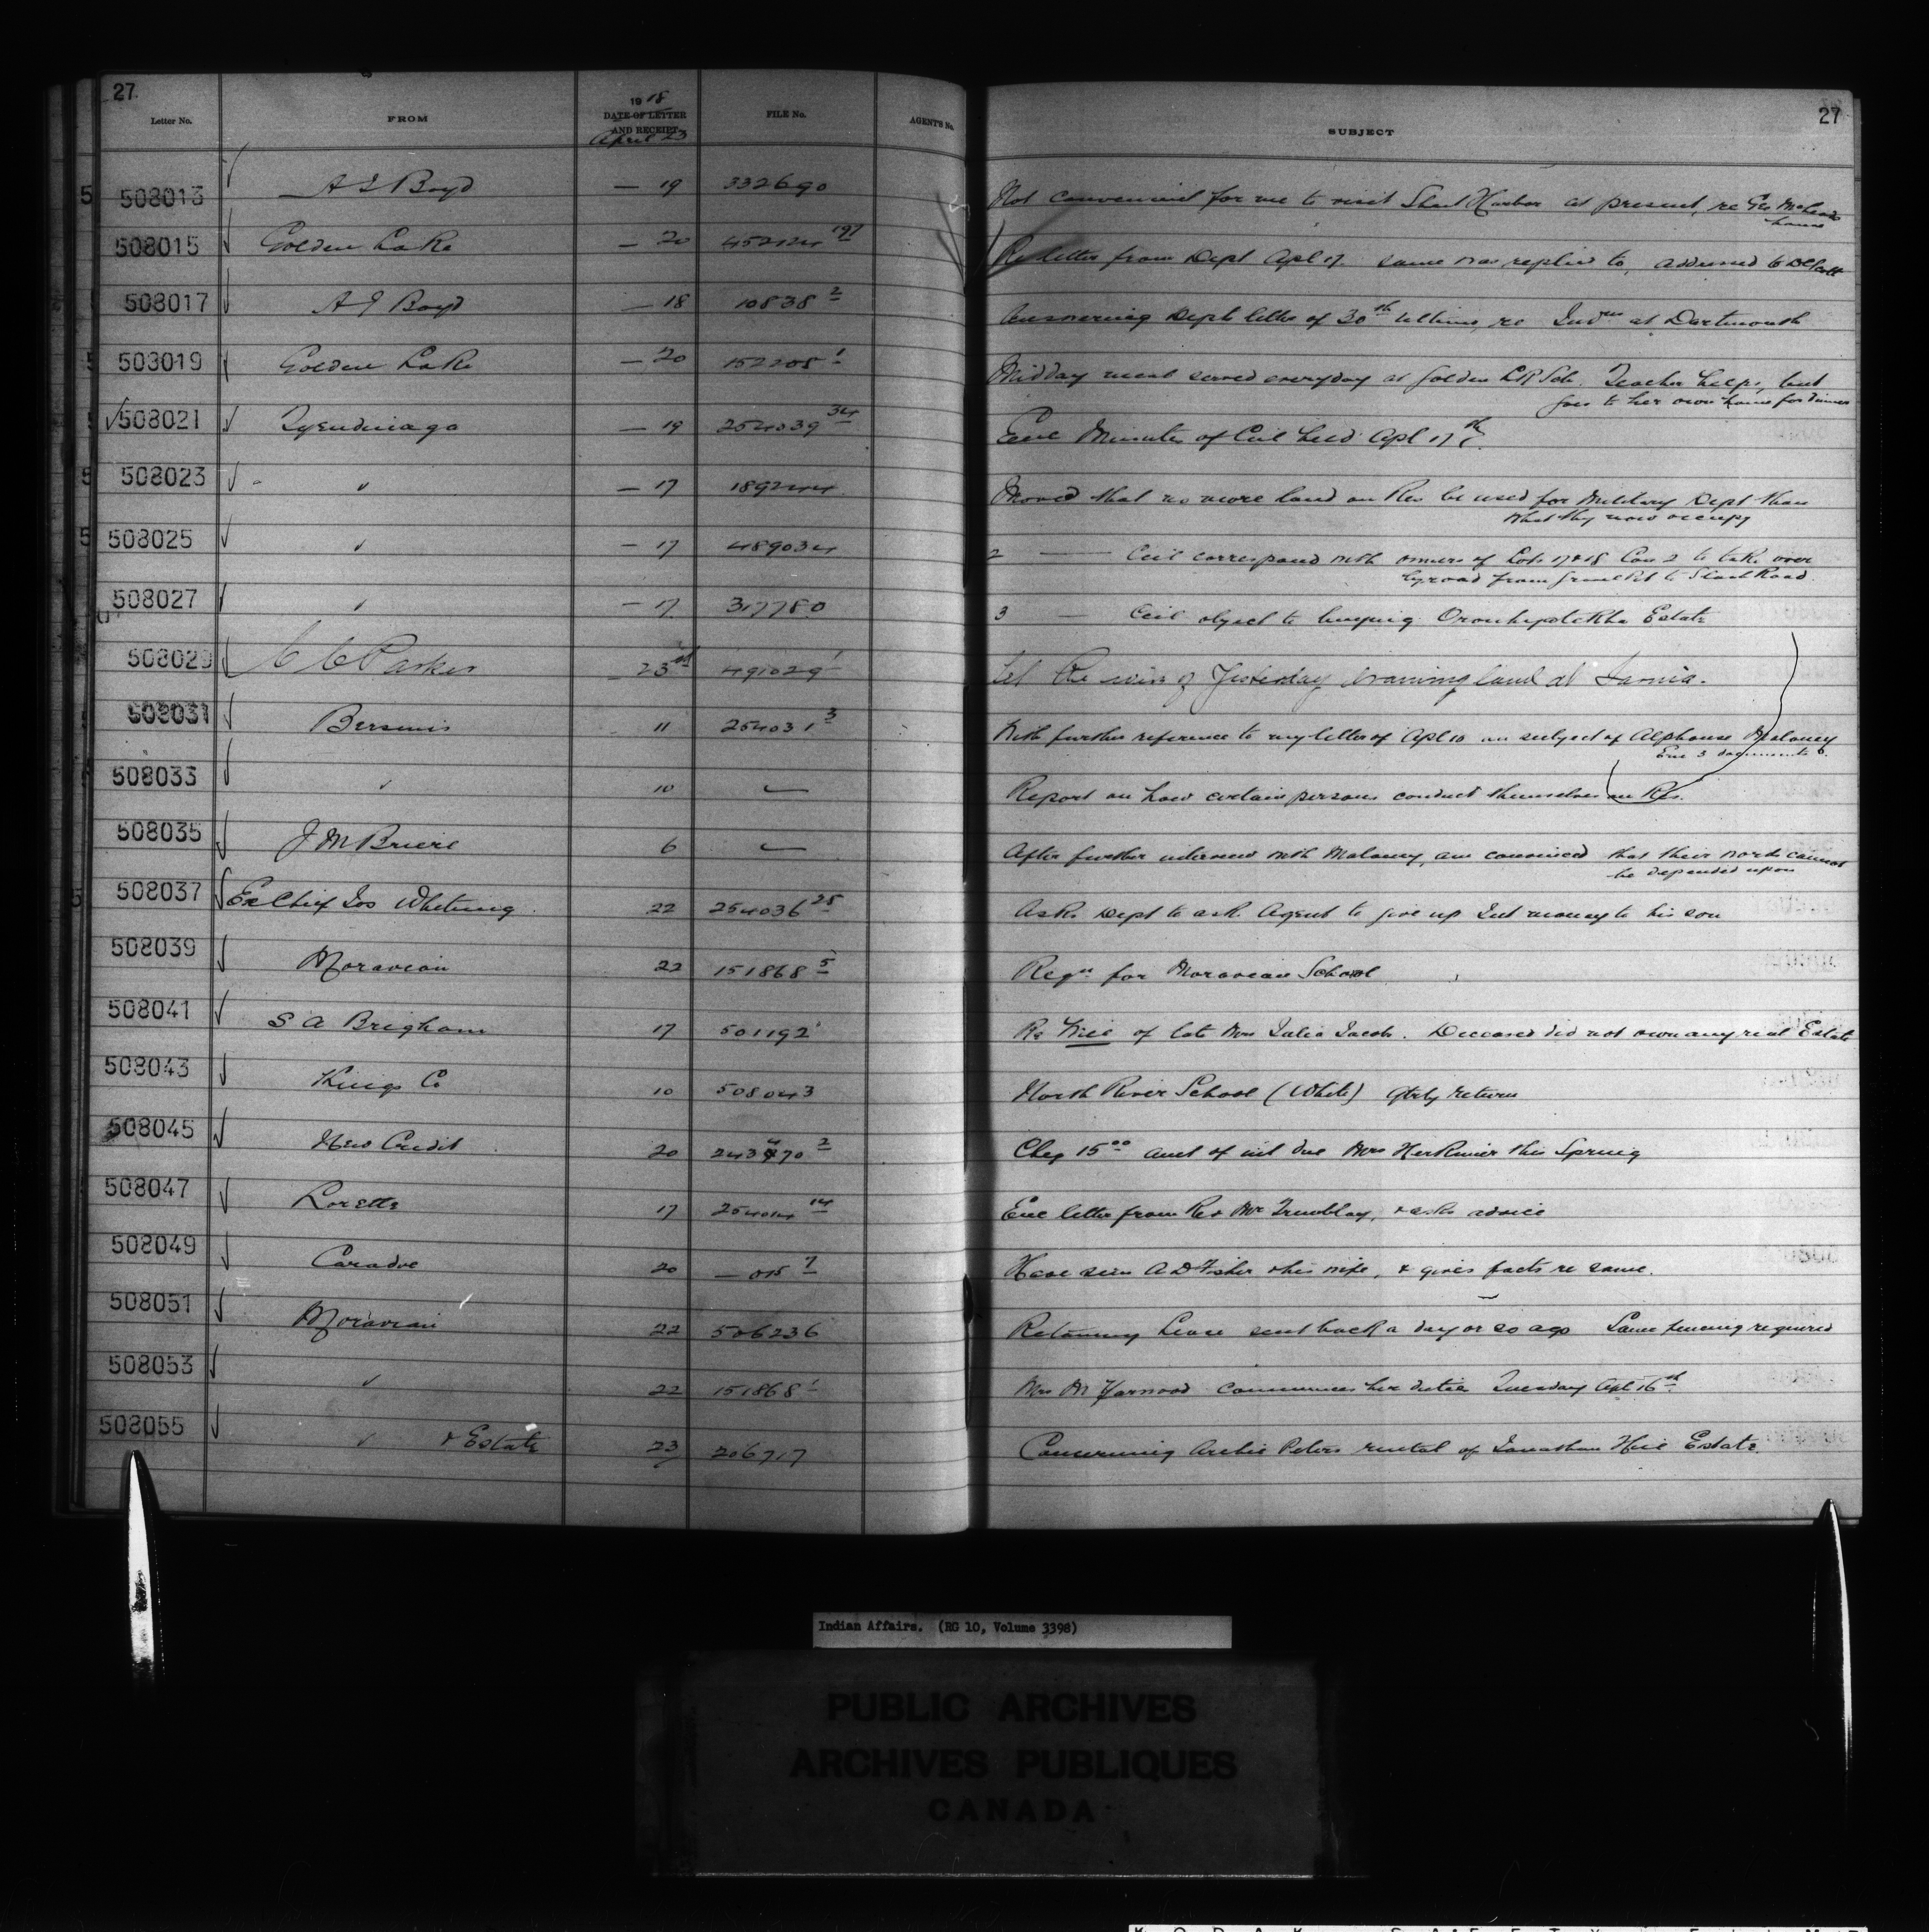 27
27
Letter No. FROM 1918 DATE OF LETTER AND RECEIPT FILE No. AGENT'S No. SUBJECT
April 23
508013 A J Boyd — 19 332690 Not convenient for me to visit Sheet Harbor at present, re Geo
house
508015 Golden Lake — 20 452124 197 Re letter from Dept Apl 17. same was replied to, addressed to D C Scott
508017 A J Boyd — 18 10838 2 Answering Dept letter of 30th ultimo, re Indns at Dartmouth
503019 Golden Lake — 20 152205 1 Midday meal served everyday at Golden LK Sch. Teacher helps, but
goes to her own home for dinner
508021 Tyendinaga — 19 254039 34 Enc Minutes of Ccil held Apl 17th
508023 " — 17 189244 Moved that no more land on Res be used for Military Dept than
what they now occupy
508025 " — 17 489034 2 — Ccil correspond with owners of Lots 17 & 18 Con 2 to take over
byroad from to Road
508027 " — 17 317780 3 — Ccil object to buying Oronhyatekha Estate
508029 C C Parker — 23rd 491029 1 wire of Yesterday draining land at Sarnia.
508031 Bersimis 11 254031 3 With further reference to my letter of Apl 10 on subject of Alphonse Maloney
Enc 3 documents
508033 " 10 — Report on how certain persons conduct themselves on Res.
508035 J M Briere 6 — After further interview with Maloney, am convinced that their words cannot
be depended upon
508037 Ex Chief Jos Whetung 22 254036 25 Asks Dept to ask Agent to give up Int money to his son
508039 Moravian 22 151868 5 Reqn for Moravian School
508041 S A Brigham 17 501192 1 Re Will of late Mrs Julia Jacobs. Deceased did not own any real Estate
508043 Kings Co 10 508043 North River School (White) Qtrly return
508045 New Credit 20 243470 2 Cheq 15 00 amt of int due Mrs Herkimer this Spring
508047 Lorette 17 254014 14 Enc letter from Rev Mr Tremblay, & asks advice
508049 Caradoc 20 — 015 7 Have seen A D Fisher & his wife, & gives facts re same.
508051 Moravian 22 506236 Returning Lease sent back a day or so ago Same fencing required
508053 " 22 151868 1 Mrs M Yarwood commences her duties Tuesday Apl 16th
508055 " & Estate 23 206717 Concerning Archie Peters rental of Jonathan Hill Estate.
Indian Affairs. (RG 10, Volume 3398)
PUBLIC ARCHIVES
ARCHIVES PUBLIQUES
CANADA